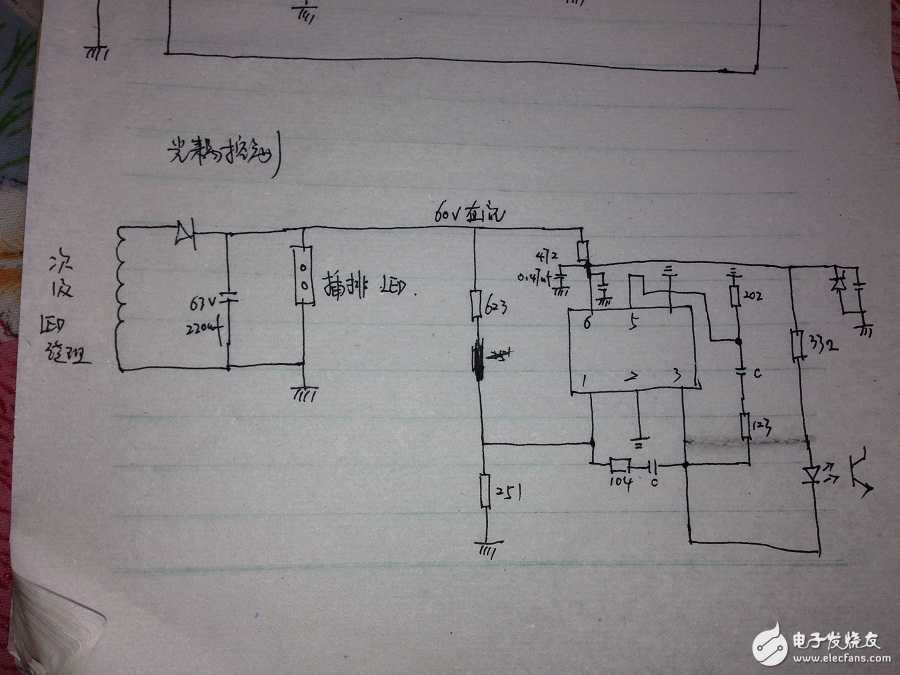 光耦控制
60V直流
次级
LED
绕组
63V
220uf
插排LED.
623
251
472
0.47uf
6
5
1
2
3
104
C
202
C
123
332
电子发烧友
www.elecfans.com